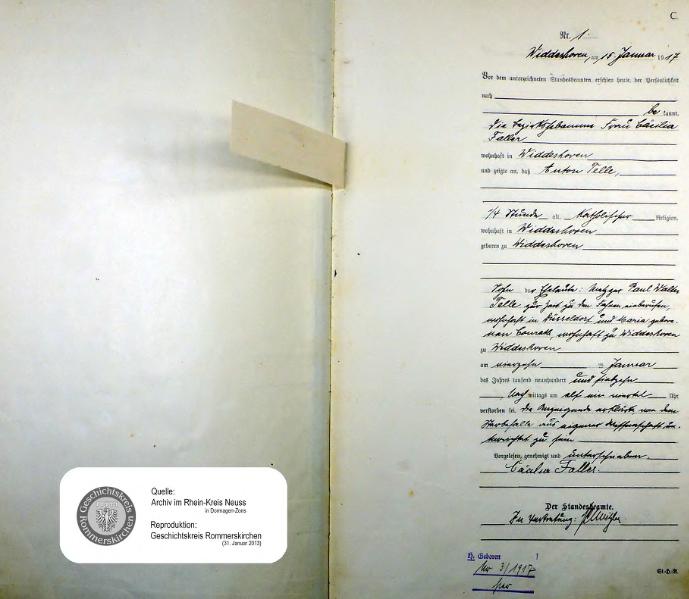 C.
Nr. 1.
Widdeshoven, am 15 Januar 1917
Vor dem unterzeichneten Standesbeamten erschien heute, der Persönlichkeit
nach
be kannt,
die Bezirkshebamme Frau Cäcilia
Faller
wohnhaft in Widdeshoven
und zeigte an, daß Anton Telle,
1/4 Stunde alt, Katholischer Religion,
wohnhaft in Widdeshoven
geboren zu Widdeshoven
Sohn der Eheleute: Metzger Paul Walter
Telle zur Zeit zu den Fahnen einberufen,
wohnhaft in Düsseldorf und Maria gebore-
nen Conrath, wohnhaft zu Widdeshoven
zu Widdeshoven
am vierzehn Januar
des Jahres tausend neunhundert und siebzehn
Nach mittags um elf ein viertel Uhr
verstorben sei. Die Anzeigende erklärte von dem
Sterbefalle aus eigener Wissenschaft un-
terrichtet zu sein.
Vorgelesen, genehmigt und unterschrieben.
Cäcilia Faller.
Der Standesbeamte.
In Vertretung:
H. Geboren
Nr 3/1917
St.-H.-R.
Geschichtskreis
Rommerskirchen
Quelle:
Archiv im Rhein-Kreis Neuss
in Dormagen-Zons
Reproduktion:
Geschichtskreis Rommerskirchen
(31. Januar 2013)